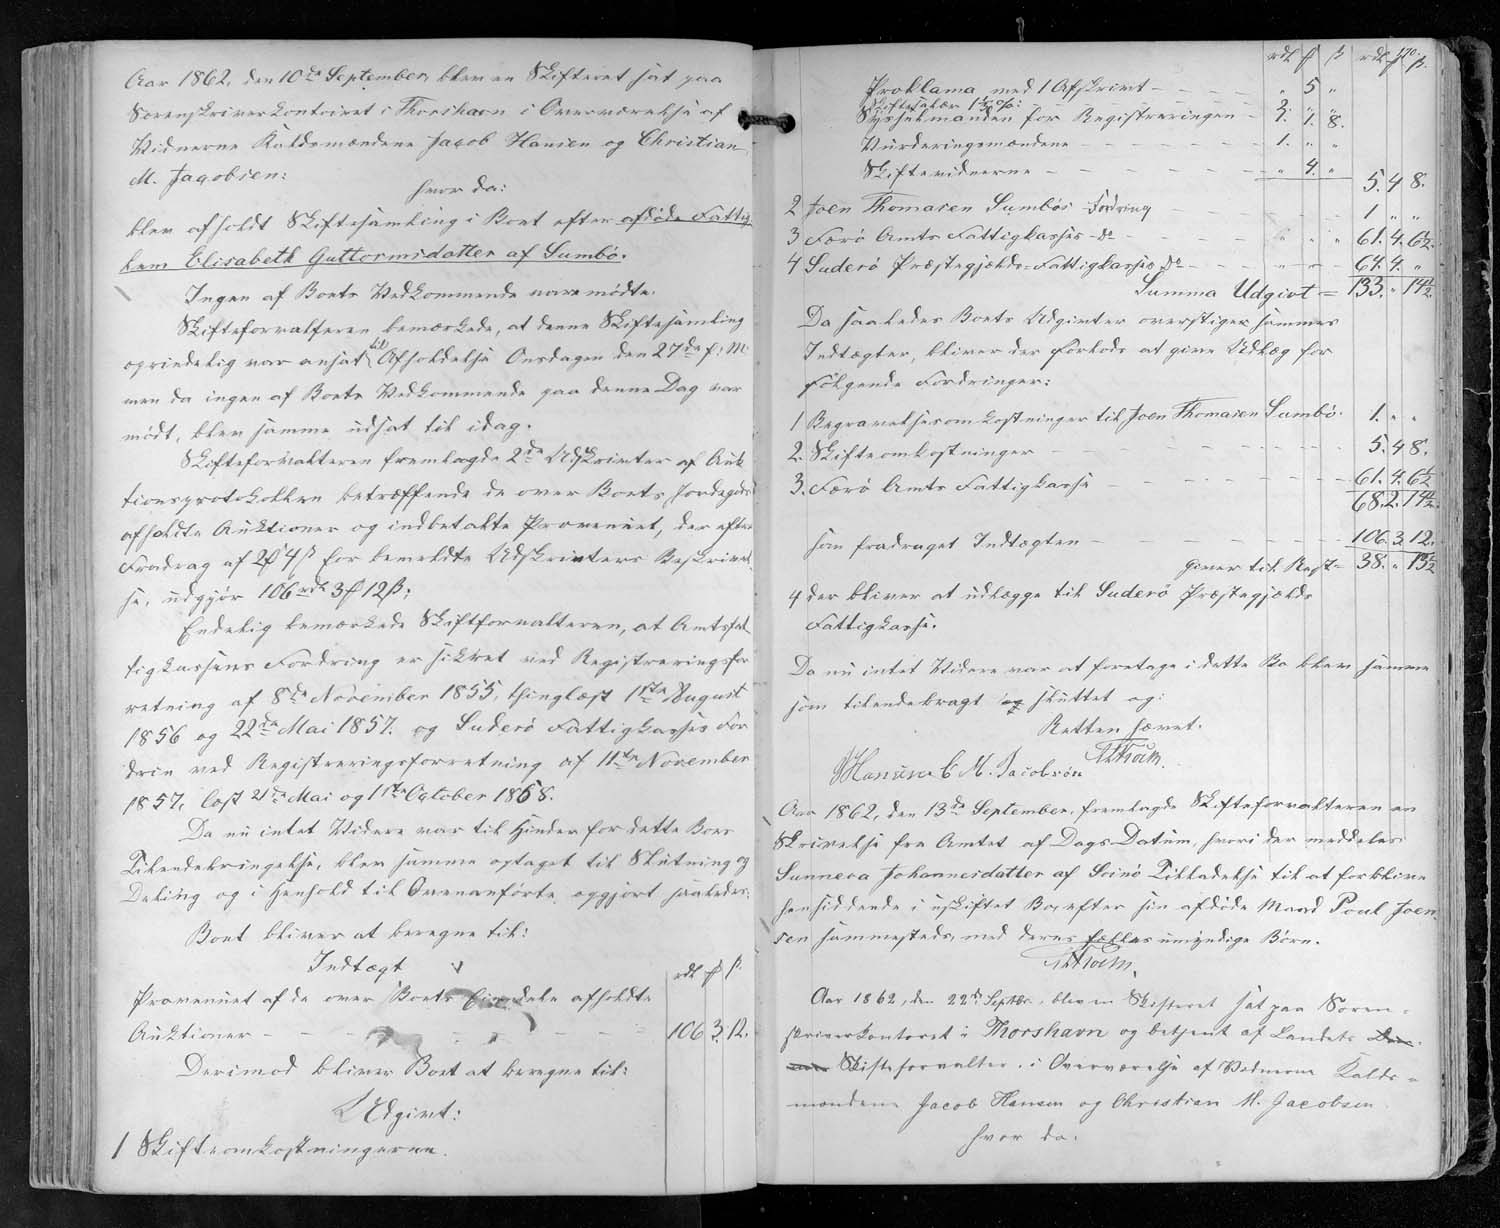 Aar 1862, den 10de September, blev en Skifteret sat paa
Sorenskriverkontoiret i Thorshavn i Overværelse af
Vidnerne Kaldsmændene Jacob Hansen og Christian
M. Jacobsen:
hvor da:
blev afholdt Skiftesamling i Boet efter afdøde Fattig
lem Elisabeth Guttormsdatter af Sumbø.
Ingen af Boets Vedkommende vare mødte.
Skifteforvalteren bemærkede, at denne Skiftesamling
oprindelig var ansat til Afholdelse Onsdagen den 27de f: M:
men da ingen af Boets Vedkommende paa denne Dag var
mødt, blev samme udsat til idag.
Skifteforvalteren fremlagde 2de Udskrivter af Auk
tionsprotokollen betræffende de over Boets Jordegods
afholdte Auktioner og indbetalte Provenuet, der efter
Fradrag af 2 4 ß for bemeldte Udskrivters Beskrivel
se, udgjør 106 rdl 3 12 ß;
Endelig bemærkede Skifteforvalteren, at Amtsfat
tigkassens Fordring er sikret ved Registreringsfor
retning af 8de November 1855, thinglæst 1ste August
1856 og 22de Mai 1857. og Suderø Fattigkasses For
drin ved Registreringsforretning af 11te November
1857, læst 21de Mai og 1ste October 1858.
Da nu intet Videre var til Hinder for dette Boes
Tilendebringelse, blev samme optaget til Slutning og
Deling og i Henhold til Ovenanførte, opgjort saaledes:
Boet bliver at beregne til:
Indtægt rdl ß
Provenuet af de over Boets Eiendele afholdte
Auktioner — 106 3. 12.
Derimod bliver Boet at beregne til:
Udgivt:
1 Skifteomkostningerne.
170.
rdl ß rdl ß.
Proklama med 1 Afskrivt — „ 5 „
Sysselmanden for Registreringen — 1. 8.
Vurderingsmændene — 1. „ „
Skiftevidnerne — „ 4. „ 5. 4 8.
2 Joen Thomasen Sumbøs Fordring — 1 „ „
3 Færø Amts Fattigkasses — Do — 61. 4. 6½.
4 Suderø Præstegjælds-Fattigkasses Do — 64. 4. „
Summa Udgivt = 133. „ 14½.
Da saaledes Boets Udgivter overstiger sammes
Indtægter, bliver der forlods at give Udlæg for
følgende Fordringer:
1 Begravelsesomkostninger til Joen Thomasen Sumbø. 1. „ „
2. Skifteomkostninger — 5. 4 8.
3. Færø Amts Fattigkasse — 61. 4. 6½
68. 2. 14½.
som fradraget Indtægten — 106. 3. 12.
giver til Rest = 38. „
4 der bliver at udlægge til Suderø Præstegjælds
Fattigkasse.
Da nu intet Videre var at foretage i dette Bo blev samme
som tilendebragt og sluttet og:
Retten hævet.
Hansen C M. Jacobsen
Aar 1862, den 13de September, fremlagde Skifteforvalteren en
Skrivelse fra Amtet af Dags Datum, hvori der meddeles
Sunneva Johannesdatter af Svinø Tilladelse til at forblive
hensiddende i uskiftet Bo, efter sin afdøde Mand Poul Joen
sen sammesteds, med deres fælles umyndige Børn.
Aar 1862, den 22de Septbr., blev en Skifteret sat paa Soren-
skriverkontoret i Thorshavn og betjent af Landets
Skifteforvalter, i Overværelse af Vidnerne Kalds-
mændene Jacob Hansen og Christian M. Jacobsen
hvor da: